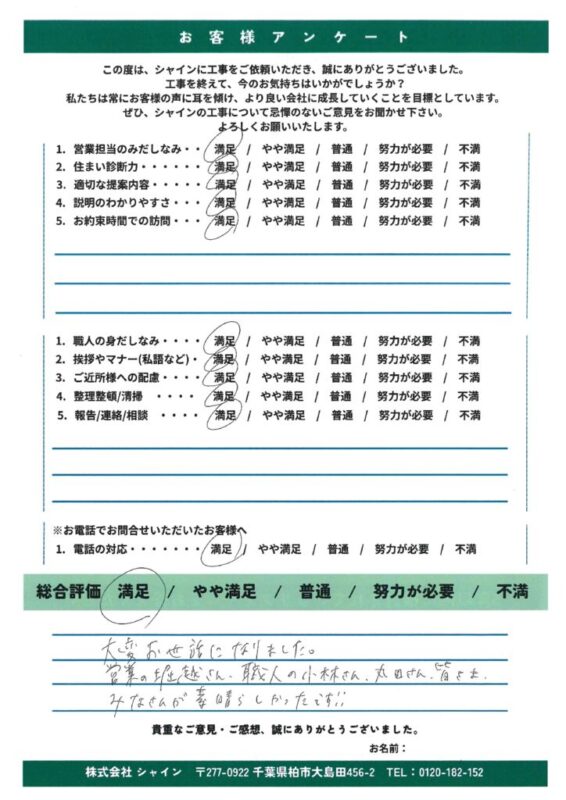 お客様アンケート
この度は、シャインに工事をご依頼いただき、誠にありがとうございました。
工事を終えて、今のお気持ちはいかがでしょうか？
私たちは常にお客様の声に耳を傾け、より良い会社に成長していくことを目標としています。
ぜひ、シャインの工事について忌憚のないご意見をお聞かせ下さい。
よろしくお願いいたします。
1. 営業担当のみだしなみ・・ 満足 / やや満足 / 普通 / 努力が必要 / 不満
2. 住まい診断力・・・・・・ 満足 / やや満足 / 普通 / 努力が必要 / 不満
3. 適切な提案内容・・・・・ 満足 / やや満足 / 普通 / 努力が必要 / 不満
4. 説明のわかりやすさ・・・ 満足 / やや満足 / 普通 / 努力が必要 / 不満
5. お約束時間での訪問・・・ 満足 / やや満足 / 普通 / 努力が必要 / 不満
1. 職人の身だしなみ・・・・ 満足 / やや満足 / 普通 / 努力が必要 / 不満
2. 挨拶やマナー(私語など)・ 満足 / やや満足 / 普通 / 努力が必要 / 不満
3. ご近所様への配慮・・・・ 満足 / やや満足 / 普通 / 努力が必要 / 不満
4. 整理整頓/清掃 ・・・・ 満足 / やや満足 / 普通 / 努力が必要 / 不満
5. 報告/連絡/相談 ・・・・ 満足 / やや満足 / 普通 / 努力が必要 / 不満
※お電話でお問合せいただいたお客様へ
1. 電話の対応・・・・・・・ 満足 / やや満足 / 普通 / 努力が必要 / 不満
総合評価 満足 / やや満足 / 普通 / 努力が必要 / 不満
大変お世話になりました。
営業の堀越さん、職人の小林さん、丸田さん、皆さま、
みなさんが素晴らしかったです!!
貴重なご意見・ご感想、誠にありがとうございました。
お名前：
株式会社 シャイン 〒277-0922 千葉県柏市大島田456-2 TEL：0120-182-152